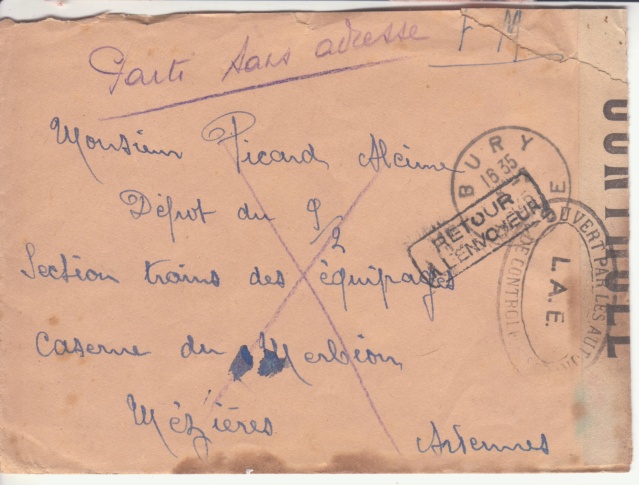 Parti sans adresse
F M
Monsieur Picard Alcime
Dépot du 9/2
Section trains des équipages
Caserne du Merbion
Mézières
Ardennes
BURY
18.35
RETOUR
A L'ENVOYEUR
OUVERT PAR LES AUTO
DE CONTROLE
L.A.E.
CONTROLE